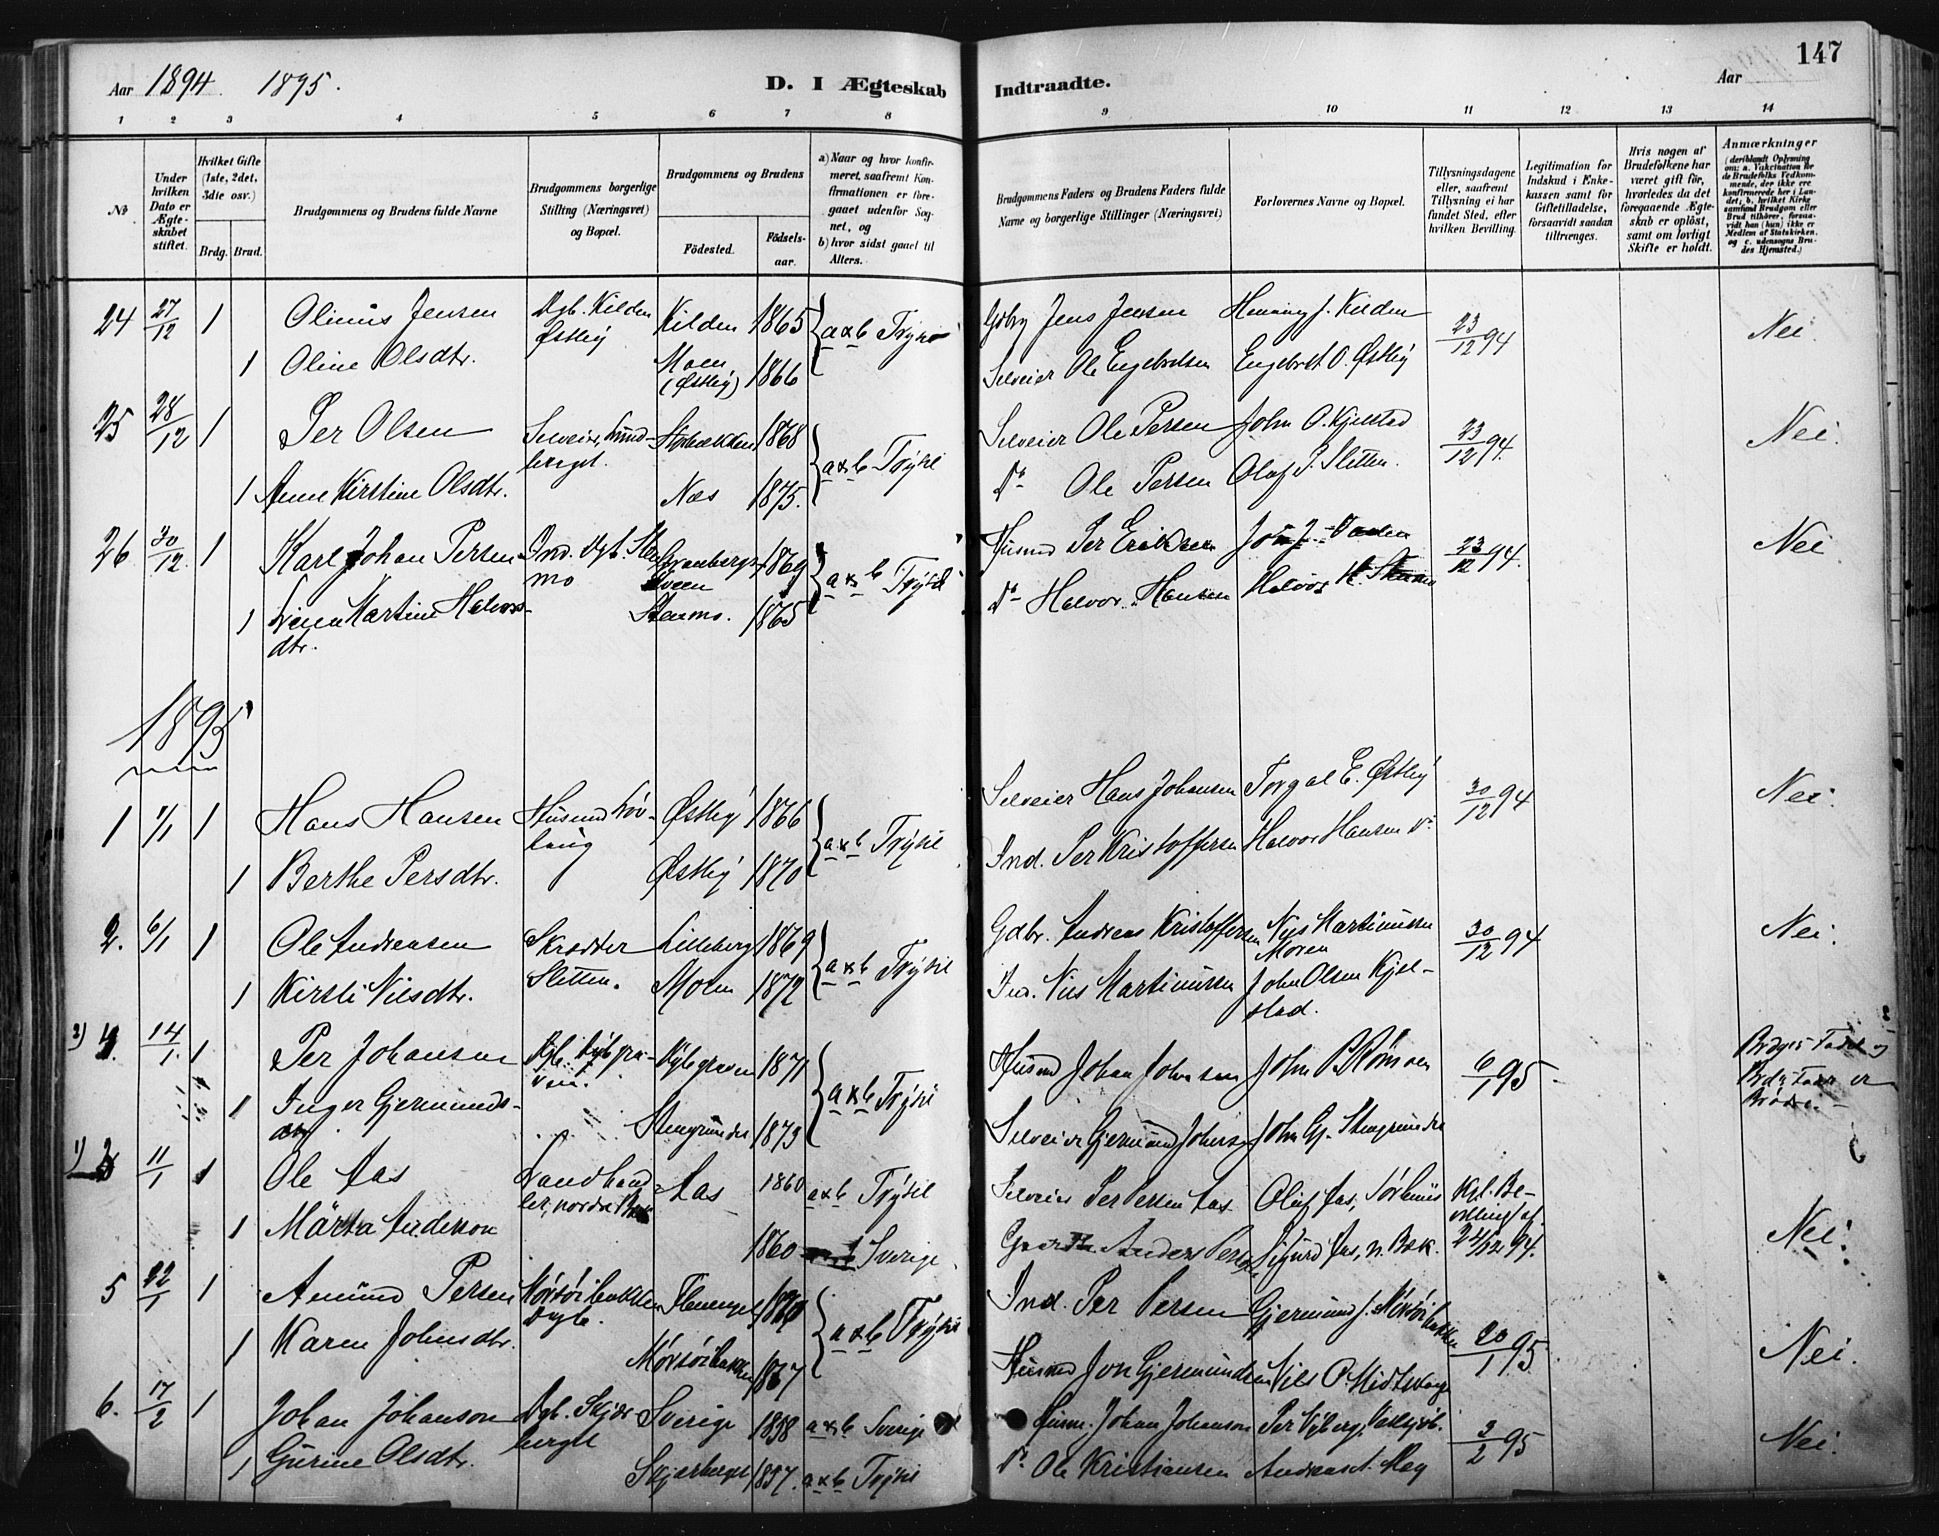 147
Aar 1894. 1895. D. I Ægteskab Indtraadte. Aar
1 2 3 4 5 6 7 8 9 10 11 12 13 14
No.
Under hvilken Dato er Ægteskabet stiftet.
Hvilket Gifte (1ste, 2det, 3die osv.)
Brdg. Brud.
Brudgommens og Brudens fulde Navne
Brudgommens borgerlige Stilling (Næringsvei) og Bopæl.
Brudgommens og Brudens
Fødested. Fødselsaar.
a) Naar og hvor konfirmeret, saafremt Konfirmationen er foregaaet udenfor Sognet, og
b) hvor sidst gaaet til Alters.
Brudgommens Faders og Brudens Faders fulde Navne og borgerlige Stillinger (Næringsvei)
Forlovernes Navne og Bopæl.
Tillysningsdagene eller, saafremt Tillysning ei har fundet Sted, efter hvilken Bevilling.
Legitimation for Indskud i Enkekassen samt for Giftetilladelse, forsaavidt saadan tiltrænges.
Hvis nogen af Brudefolkene har været gift før, hvorledes da det foregaaende Ægteskab er opløst, samt om lovligt Skifte er holdt.
Anmærkninger
(deriblandt Oplysning om: a. Vakcination for de Brudefolks Vedkommende, der ikke ere konfirmerede her i Landet, b. hvilket Kirkesamfund Brudgom eller Brud tilhører, forsaavidt han (hun) ikke er Medlem af Statskirken, og c. udensogns Brudes Hjemsted.)
24 27/12 1 Olinus Jensen Dgb. Kilden Østby Kilden 1865 a & b Trysil Gdbr Jens Jensen Henning J. Kilden 23/12 94 Nei.
1 Oline Olsdtr. Moen (Østby) 1866 Selveier Ole Engebretsen Engebret O. Østby
25 28/12 1 Per Olsen Selveier, Lundberget. Storbækken 1868 a & b Trysil Selveier Ole Persen John O. Kjelstad 23/12 94. Nei.
1 Anne Kirstine Olsdtr. Næs 1875. Do Ole Persen Olaf P. Sletten.
26 30/12 1 Karl Johan Persen Ind. Dgb. Stenmo Granbergsveen 1869 a & b Trysil Husmd Per Eriksen 23/12 94. Nei
1 Martine Halvorsdtr. Stenmo. 1865 Do Halvor Hansen Halvor H. Stenmo
1895
1 1/1 1 Hans Hansen Husmd Østby 1866 a & b Trysil Selveier Hans Johansen Torgal E. Østby 30/12 94 Nei.
1 Berthe Persdtr. Østby 1870 Ind. Per Kristoffersen Halvor Hansen Do
2. 6/1 1 Ole Andreasen Skrædder Sletten. Lilleberg 1869 a & b Trysil Gdbr. Andreas Kristoffersen Nils Martinussen Moren 30/12 94 Nei.
1 Kirsti Nilsdtr. Moren 1872 Ind. Nils Martinussen John Olsen Kjelstad.
2) 4. 14/1. 1 Per Johansen Dgb. Nybgraven 1871 a & b Trysil Husmd Johan Johnsen John P. Rømoen 6/1 95 Brdgs Fader og Brds Fader er Brødre
1 Inger Gjermundsdtr Stengrundet 1873 Selveier Gjermund Johnsen John Gj. Stengrundet
1) 3 11/1 1 Ole Aas Landhandler, nordre Bæk Aas 1860 a & b Trysil Selveier Per Persen Aas Oluf Aas, Sørhuus Kgl. Bevilling af 24/12 94. Nei.
1 Märta Anderson 1860 Sverige Anders Sigurd Aas, n. Bæk.
5 22/1 1 Amund Persen Dgb. Flenenget a & b Trysil Ind. Per Persen Gjermund J. 20/1 95 Nei.
1 Karen Johnsdtr. 1867 Husmd Jon Gjermundsen Nils O. Midtskoge
6. 17/2 1 Johan Johanson Dgb. Skjærberget Sverige 1858 a & b Sverige Husm. Johan Johanson Per Nyberg, 3/2 95 Nei.
1 Gurine Olsdtr. Skjærberget 1857. a & b Trysil Do Ole Kristiansen Andreas A. Moy